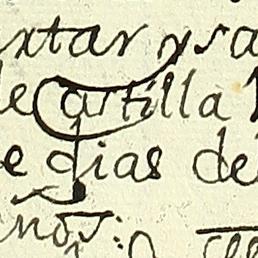 xtar y sa
de Castilla
e dias de
nos: